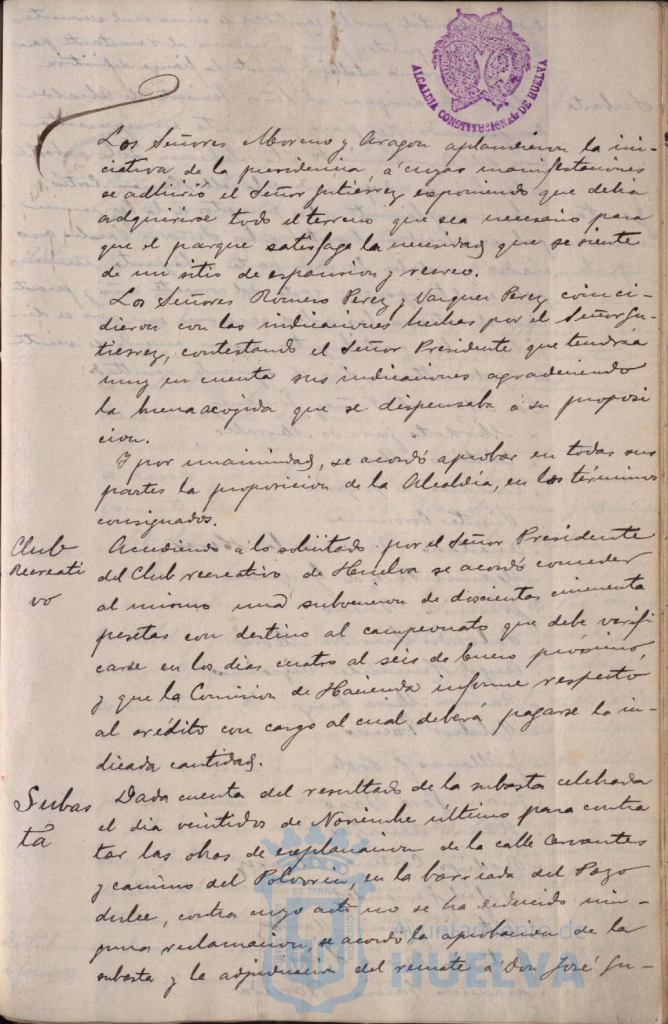 ALCALDIA CONSTITUCIONAL DE HUELVA
Los Señores Moreno y Aragon aplaudieron la ini-
ciativa de la presidencia, á cuyas manifestaciones
se adhirió el Señor Gutierrez exponiendo que debia
adquirirse todo el terreno que sea necesario para
que el parque satisfaga la necesidad que se siente
de un sitio de expansion y recreo.
Los Señores Romero Perez y Vazquez Perez coinci-
dieron con las indicaciones hechas por el Señor Gu-
tierrez, contestando el Señor Presidente que tendria
muy en cuenta sus indicaciones agradeciendo
la buena acojida que se dispensaba á su proposi
cion.
Y por unanimidad, se acordó aprobar en todas sus
partes la proposicion de la Alcaldía, en los términos
consignados.
Club
Recreati
vo
Accediendo á lo solicitado por el Señor Presidente
del Club recreativo de Huelva se acordó conceder
al mismo una subvencion de doscientas cincuenta
pesetas con destino al campeonato que debe verifi
carse en los dias cuatro al seis de Enero próximo,
y que la Comision de Hacienda informe respecto
al crédito con cargo al cual deberá pagarse la in-
dicada cantidad.
Subas
ta
Dada cuenta del resultado de la subasta celebrada
el dia veintidos de Noviembre último para contra
tar las obras de explanacion de la calle Cervantes
y camino del Polvorin, en la barriada del Pozo
dulce, contra cuyo acto no se ha deducido nin-
guna reclamacion, se acordó la aprobacion de la
subasta y la adjudicacion del remate á Don José Gu-
Ayuntamiento de
HUELVA